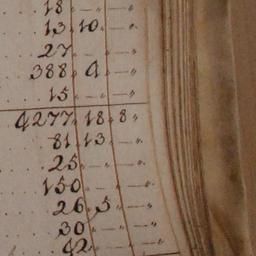 18 „ — „ — „
13 „ 10 „ — „
27 „ — „ — „
388 „ 9 „ — „
15 „ — „ — „
4277 „ 18 „ 8 „
81 „ 13 „ — „
25 „ — „ — „
150 „ — „ — „
26 „ 5 „ — „
30 „ — „ — „
42 „ — „ — „